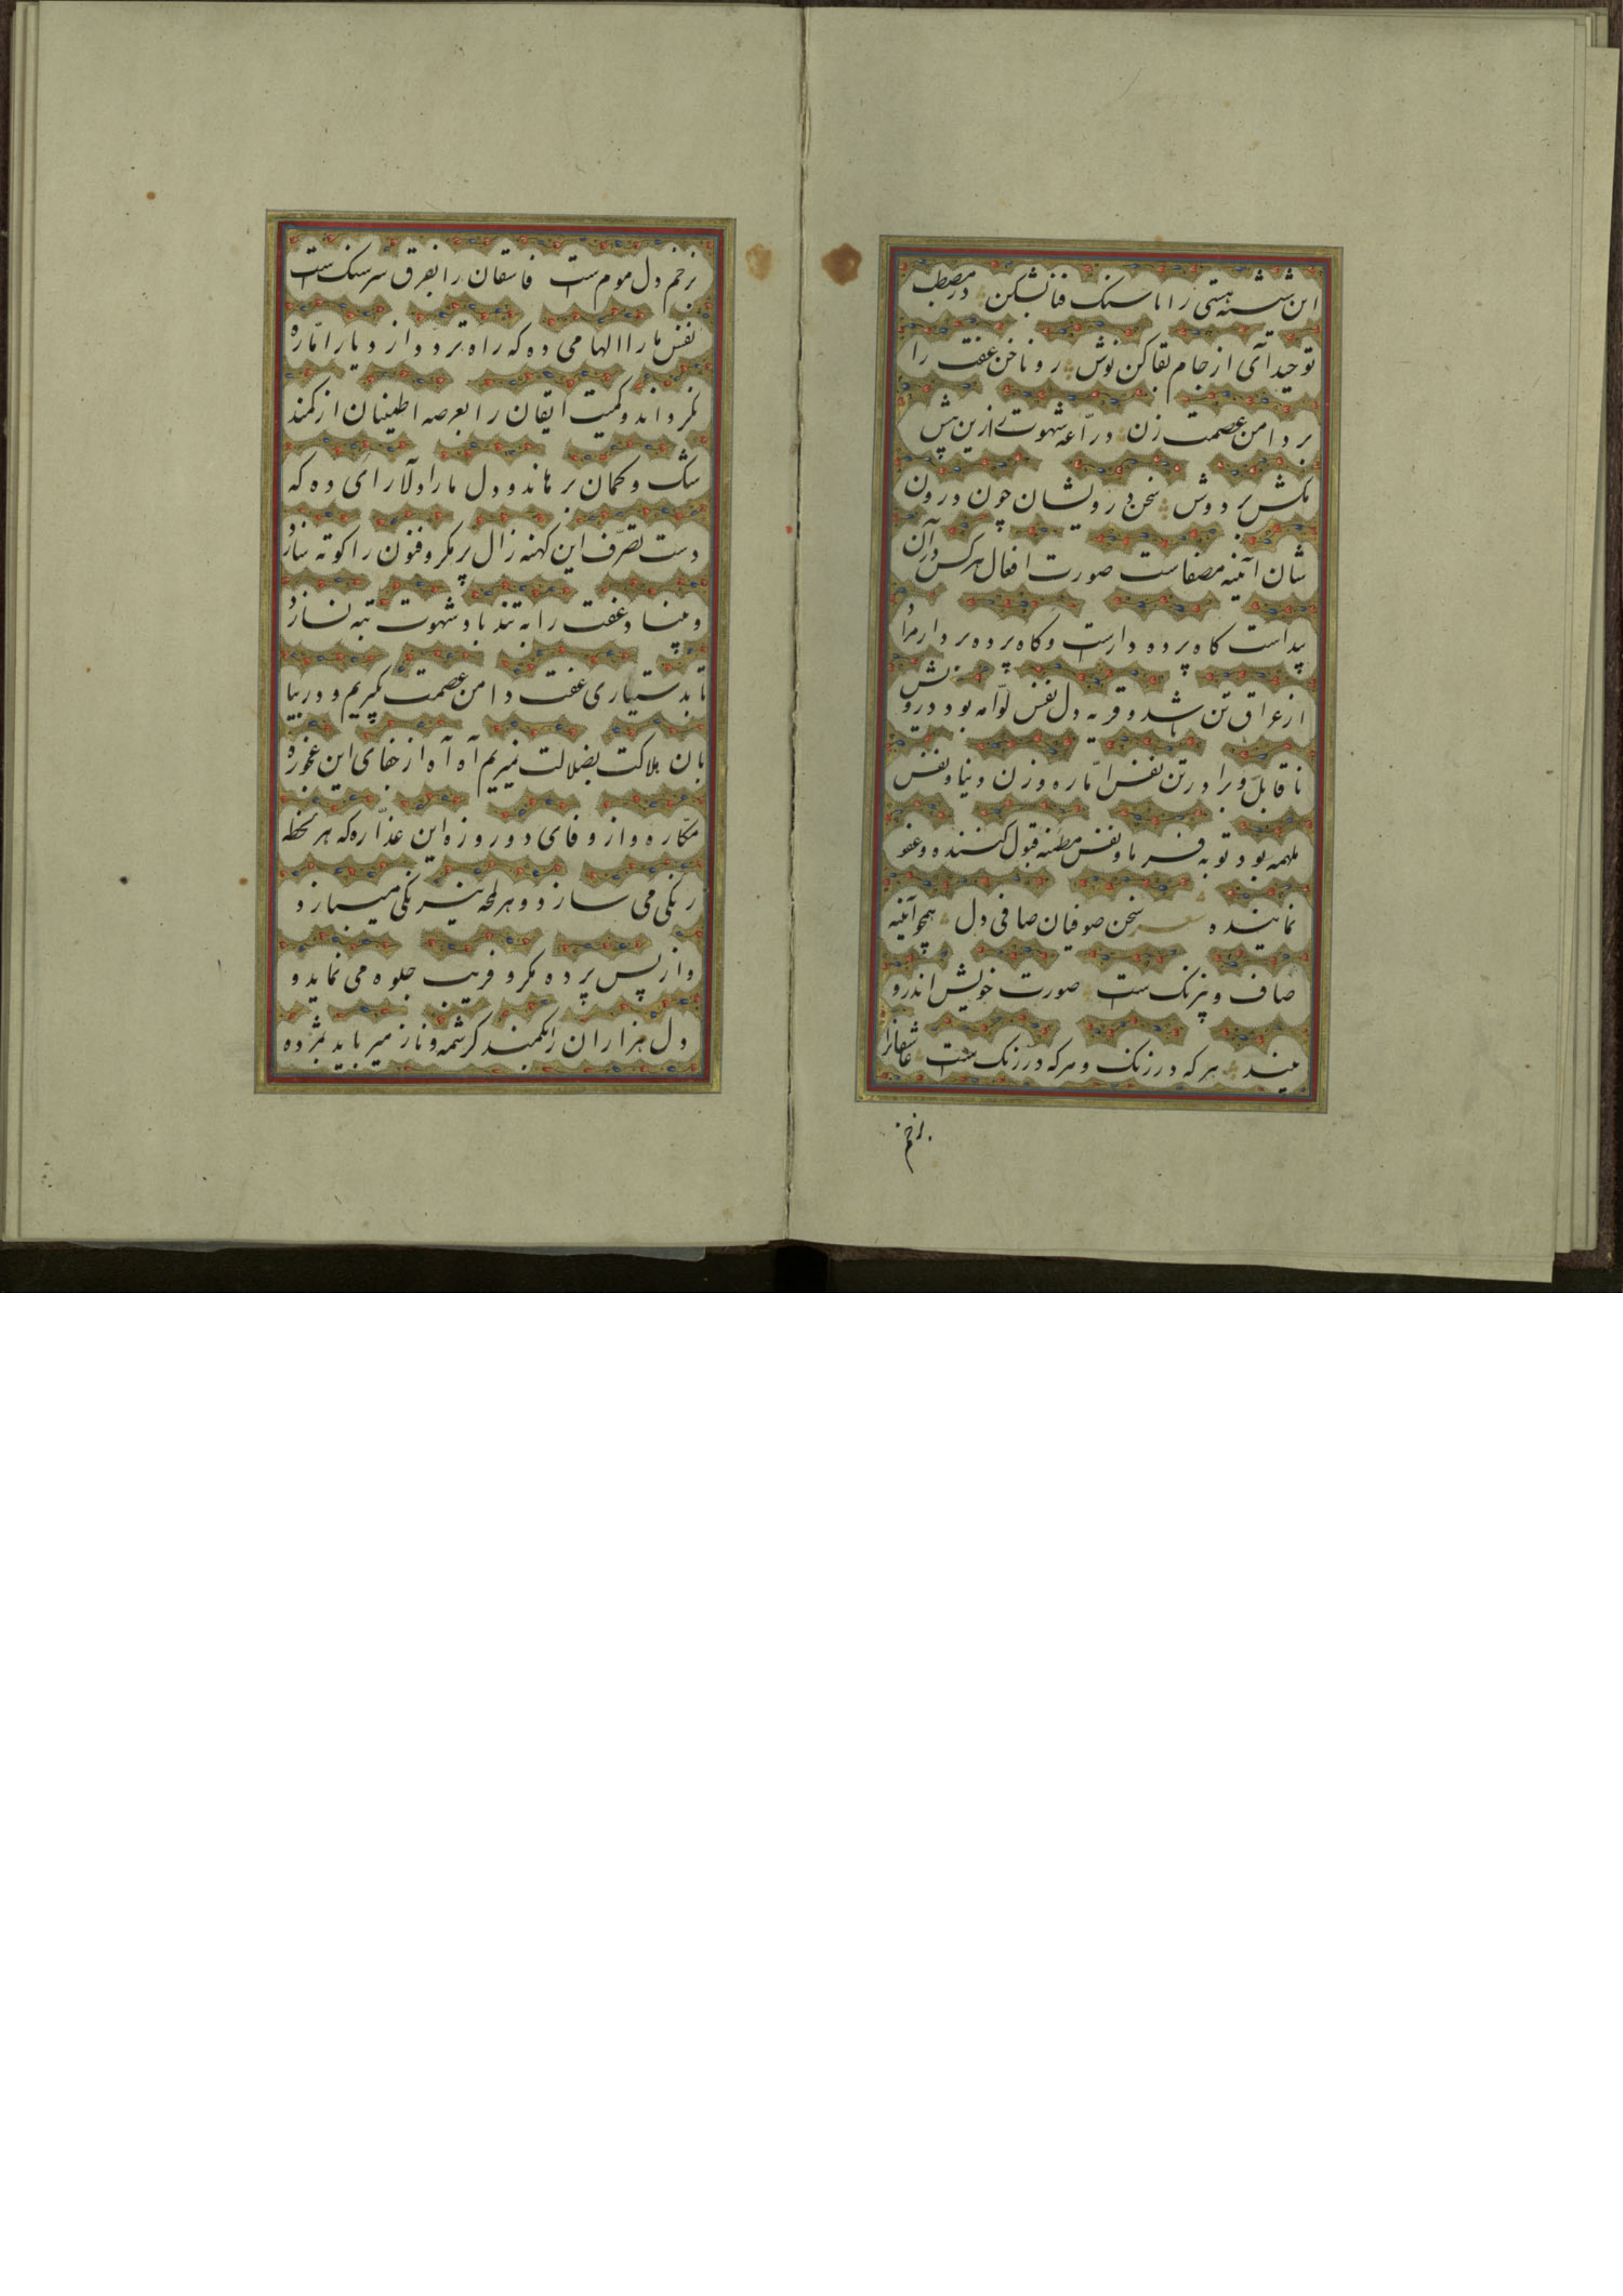 این شیشه هستی را با سنک فنا بشکن در مصطب
توحید آی از جام بقا کن نوش رو ناخن عفت را
بر دامن عصمت زن درّاعه شهوت را زین پیش
مکش بر دوش سخن درویشان چون درون
شان آئینه مصفاست صورت افعال هرکس در آن
پیداست کاه پرده دارست و کاه پرده بردار مراد
از عراق تن باشد و قریه دل نفس لوّامه بود درویش
ناقابل و برادر تن نفس امّاره و زن دنیا و نفس
ملهمه بود توبه فرما و نفس مطمئنه قبول کننده و عفو
نماینده شعر سخن صوفیان صافی دل همچو آئینه
صاف و بیرنک ست صورت خویش اندرو
بیند هر که در زنک و هر که در رنک ست عاشقانرا
بزخم
بزخم دل موم ست فاسقان را بفرق سر سنک ست
نفس ما را الهامی ده که راه برد و از دیار امّاره
نکرداند و کمیت ایقان را بعرصه اطمینان از کمند
شک و کمان برهاند و دل ما را دلآرائی ده که
دست تصرّف این کهنه زال پر مکر و فنون را کوته سازد
و بنیاد عفت را به تند باد شهوت تبه نسازد
تا بدستیاری عفت دامن عصمت بگیریم و در بیا
بان هلاکت بضلالت نمیریم آه آه از جفای این عجوزه
مکّاره و از وفای دو روزه این غدّاره که هر لحظه
رنکی می سازد و هر لمحه نیرنکی میبازد
و از پس پرده مکر و فریب جلوه می نماید و
دل هزاران را بکمند کرشمه و ناز میرباید مژده